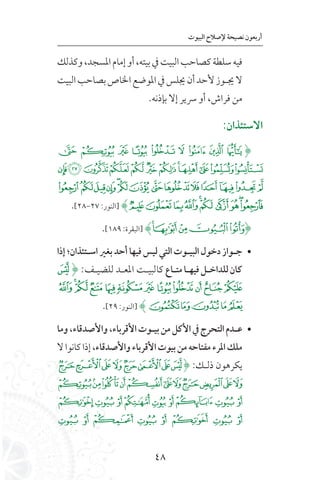 أربعون نصيحة لإصلاح البيوت
فيه سلطة كصاحب البيت في بيته، أو إمام المسجد، وكذلك
لا يجـوز لأحد أن يجلس في الموضع الخاص بصاحب البيت
من فراش، أو سرير إلا بإذنه.
الاستئذان:
﴿ يَٰٓأَيُّهَا ٱلَّذِينَ ءَامَنُوا۟ لَا تَدْخُلُوا۟ بُيُوتًا غَيْرَ بُيُوتِكُمْ حَتَّىٰ
تَسْتَأْنِسُوا۟ وَتُسَلِّمُوا۟ عَلَىٰٓ أَهْلِهَا ۚ ذَٰلِكُمْ خَيْرٌ لَّكُمْ لَعَلَّكُمْ تَذَكَّرُونَ ﴿٢٧﴾ فَإِن
لَّمْ تَجِدُوا۟ فِيهَآ أَحَدًا فَلَا تَدْخُلُوهَا حَتَّىٰ يُؤْذَنَ لَكُمْ ۖ وَإِن قِيلَ لَكُمُ ٱرْجِعُوا۟
فَٱرْجِعُوا۟ ۖ هُوَ أَزْكَىٰ لَكُمْ ۚ وَٱللَّهُ بِمَا تَعْمَلُونَ عَلِيمٌ ﴾ [النور: ٢٧-٢٨].
﴿ وَأْتُوا۟ ٱلْبُيُوتَ مِنْ أَبْوَٰبِهَا ﴾ [البقرة: ١٨٩].
• جـواز دخول البيـوت التي ليس فيها أحد بغير اسـتئذان؛ إذا
كان للداخـل فيهـا متـاع كالبيـت المعـد للضيـف: ﴿ لَّيْسَ
عَلَيْكُمْ جُنَاحٌ أَن تَدْخُلُوا۟ بُيُوتًا غَيْرَ مَسْكُونَةٍ فِيهَا مَتَٰعٌ لَّكُمْ ۚ وَٱللَّهُ
يَعْلَمُ مَا تُبْدُونَ وَمَا تَكْتُمُونَ ﴾ [النور: ٢٩].
• عـدم التحرج في الأكل من بيـوت الأقرباء، والأصدقاء، وما
ملك المرء مفتاحه من بيوت الأقرباء والأصدقاء، إذا كانوا لا
يكرهون ذلـك: ﴿ لَّيْسَ عَلَى ٱلْأَعْمَىٰ حَرَجٌ وَلَا عَلَى ٱلْأَعْرَجِ حَرَجٌ
وَلَا عَلَى ٱلْمَرِيضِ حَرَجٌ وَلَا عَلَىٰٓ أَنفُسِكُمْ أَن تَأْكُلُوا۟ مِنۢ بُيُوتِكُمْ
أَوْ بُيُوتِ ءَابَآئِكُمْ أَوْ بُيُوتِ أُمَّهَٰتِكُمْ أَوْ بُيُوتِ إِخْوَٰنِكُمْ
أَوْ بُيُوتِ أَخَوَٰتِكُمْ أَوْ بُيُوتِ أَعْمَٰمِكُمْ أَوْ بُيُوتِ
٤٨